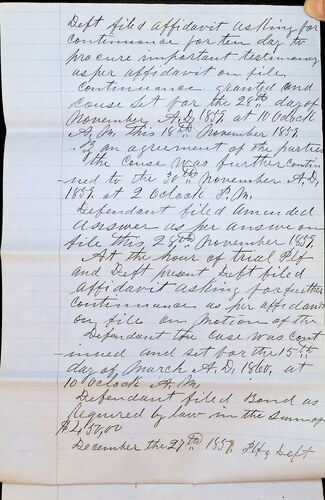 Deft filed affidavit asking for
continuance for ten day to
procure important testimony
as per affidavit on file
continuance granted and
cause set for the 28th day of
November A.D. 1859 at 10 Oclock
A.M. This 18th November 1859.
By an agreement of the parties
the cause was further contin
ued to the 30th November A.D.
1859. at 2 Oclock P.M.
Defendant filed amended
answer as per answer on
file this 28th November 1859.
At the hour of trial Plf
and Deft present Deft filed
affidavit asking for further
continuance as per affidavit
on file on motion of the
Defendant the case was cont
inued and set for the 15th
day of March A.D. 1860, at
10 Oclock A.M.
Defendant filed Bond as
required by law in the sum of
$450,00
December the 27th 1859. Plf & Deft